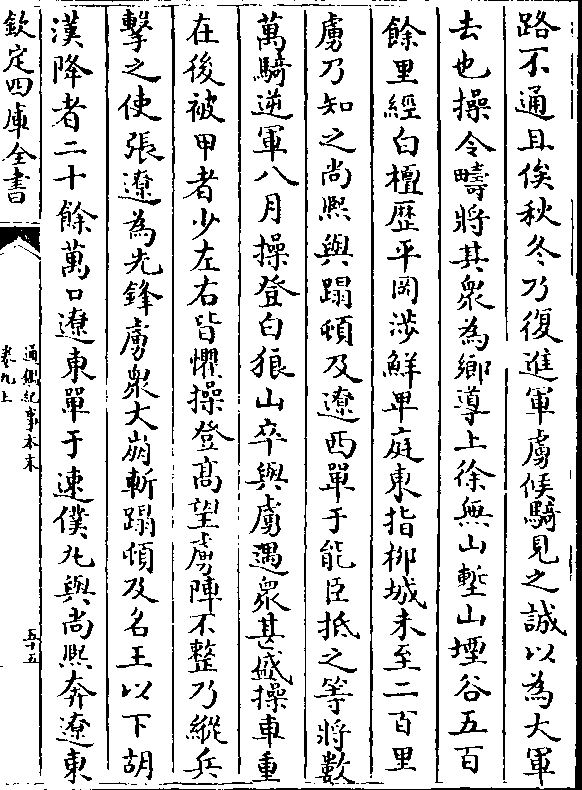 路不通且俟秋冬乃復進軍虜候騎見之誠以為大軍
去也操令疇將其衆為鄉導上徐無山塹山堙谷五百
餘里經白檀歷平岡涉鮮卑庭東指栁城未至二百里
虜乃知之尚熙與蹋頓及遼西單于能臣抵之等將數
萬騎逆軍八月操登白狼山卒與虜遇衆甚盛操車重
在後被甲者少左右皆懼操登髙望虜陣不整乃縱兵
擊之使張遼為先鋒虜衆大崩斬蹋頓及名王以下胡
漢降者二十餘萬口遼東單于速僕丸與尚熙奔遼東
欽定四庫全書
通鑑紀事本末
卷九上
五十五